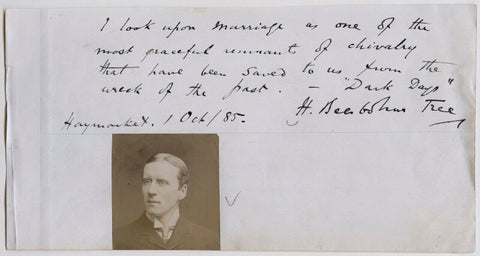 I look upon marriage as one of the
most graceful remnants of chivalry
that have been saved to us from the
wreck of the past. — "Dark Days"
H. Beerbohm Tree
Haymarket. 1 Oct/85.